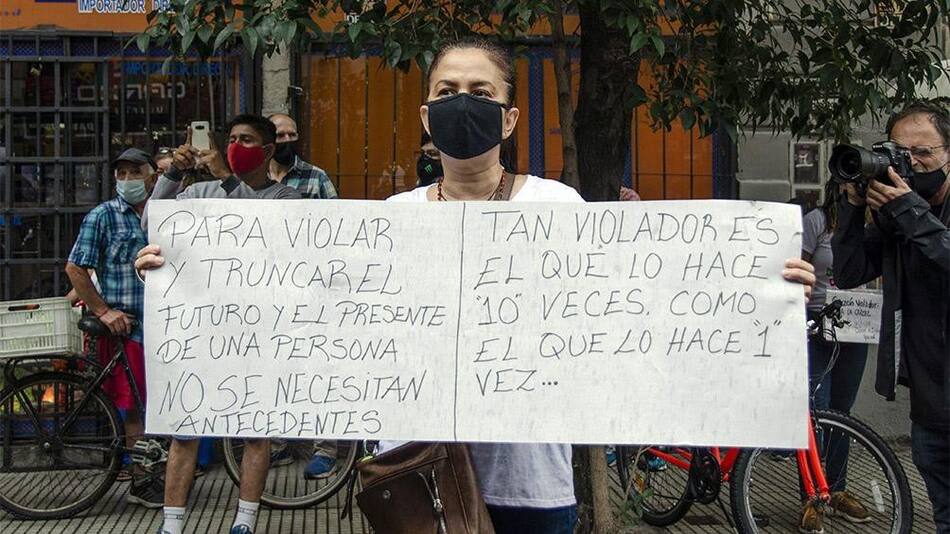 IMPORTADOR
IMPORTADOR DIREC
PARA VIOLAR
Y TRUNCAR EL
FUTURO Y EL PRESENTE
DE UNA PERSONA
NO SE NECESITAN
ANTECEDENTES
TAN VIOLADOR ES
EL QUE LO HACE
"10" VECES, COMO
EL QUE LO HACE "1"
VEZ...
A LA CÁRCEL